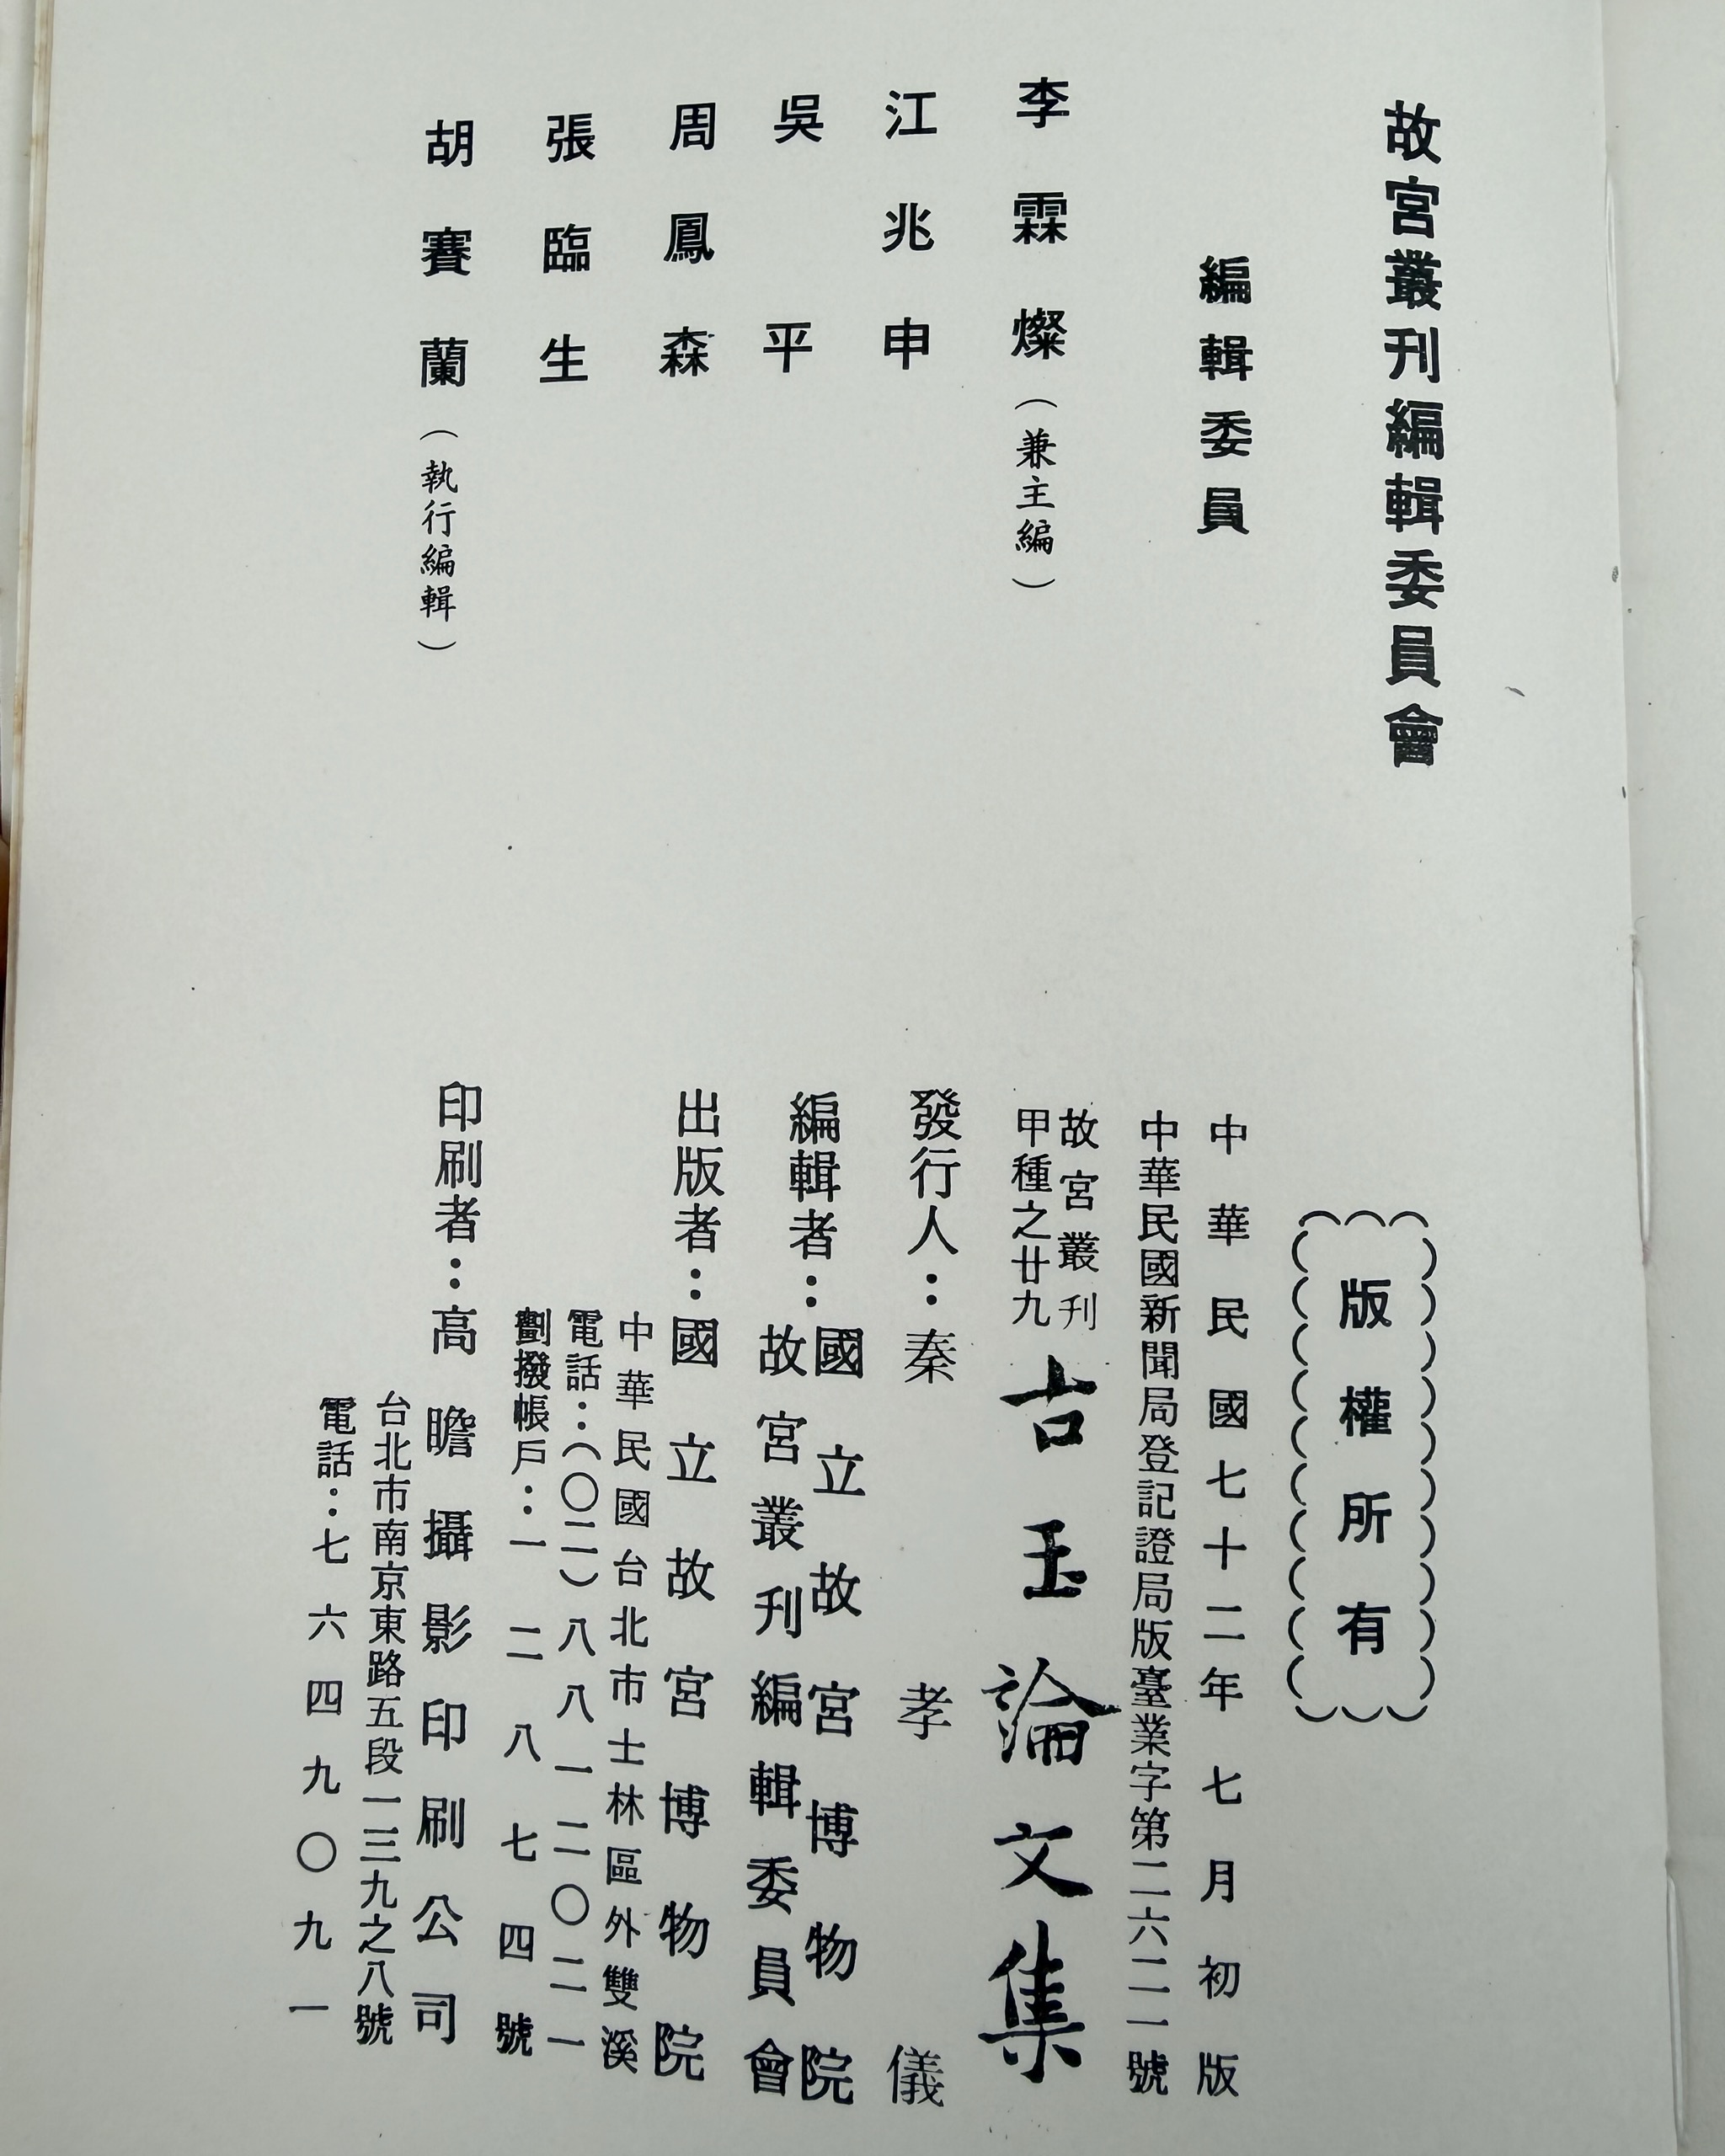 故宮叢刊編輯委員會
編輯委員
李霖燦（兼主編）
江兆申
吳平
周鳳森
張臨生
胡賽蘭（執行編輯）
版權所有
中華民國七十二年七月初版
中華民國新聞局登記證局版臺業字第二六二一號
故宮叢刊
甲種之廿九
古玉論文集
發行人：秦孝儀
編輯者：國立故宮博物院
故宮叢刊編輯委員會
出版者：國立故宮博物院
中華民國台北市士林區外雙溪
電話：（〇二）八八一二〇二一
劃撥帳戶：一二八七四號
印刷者：高瞻攝影印刷公司
台北市南京東路五段一三九之八號
電話：七六四九〇九一